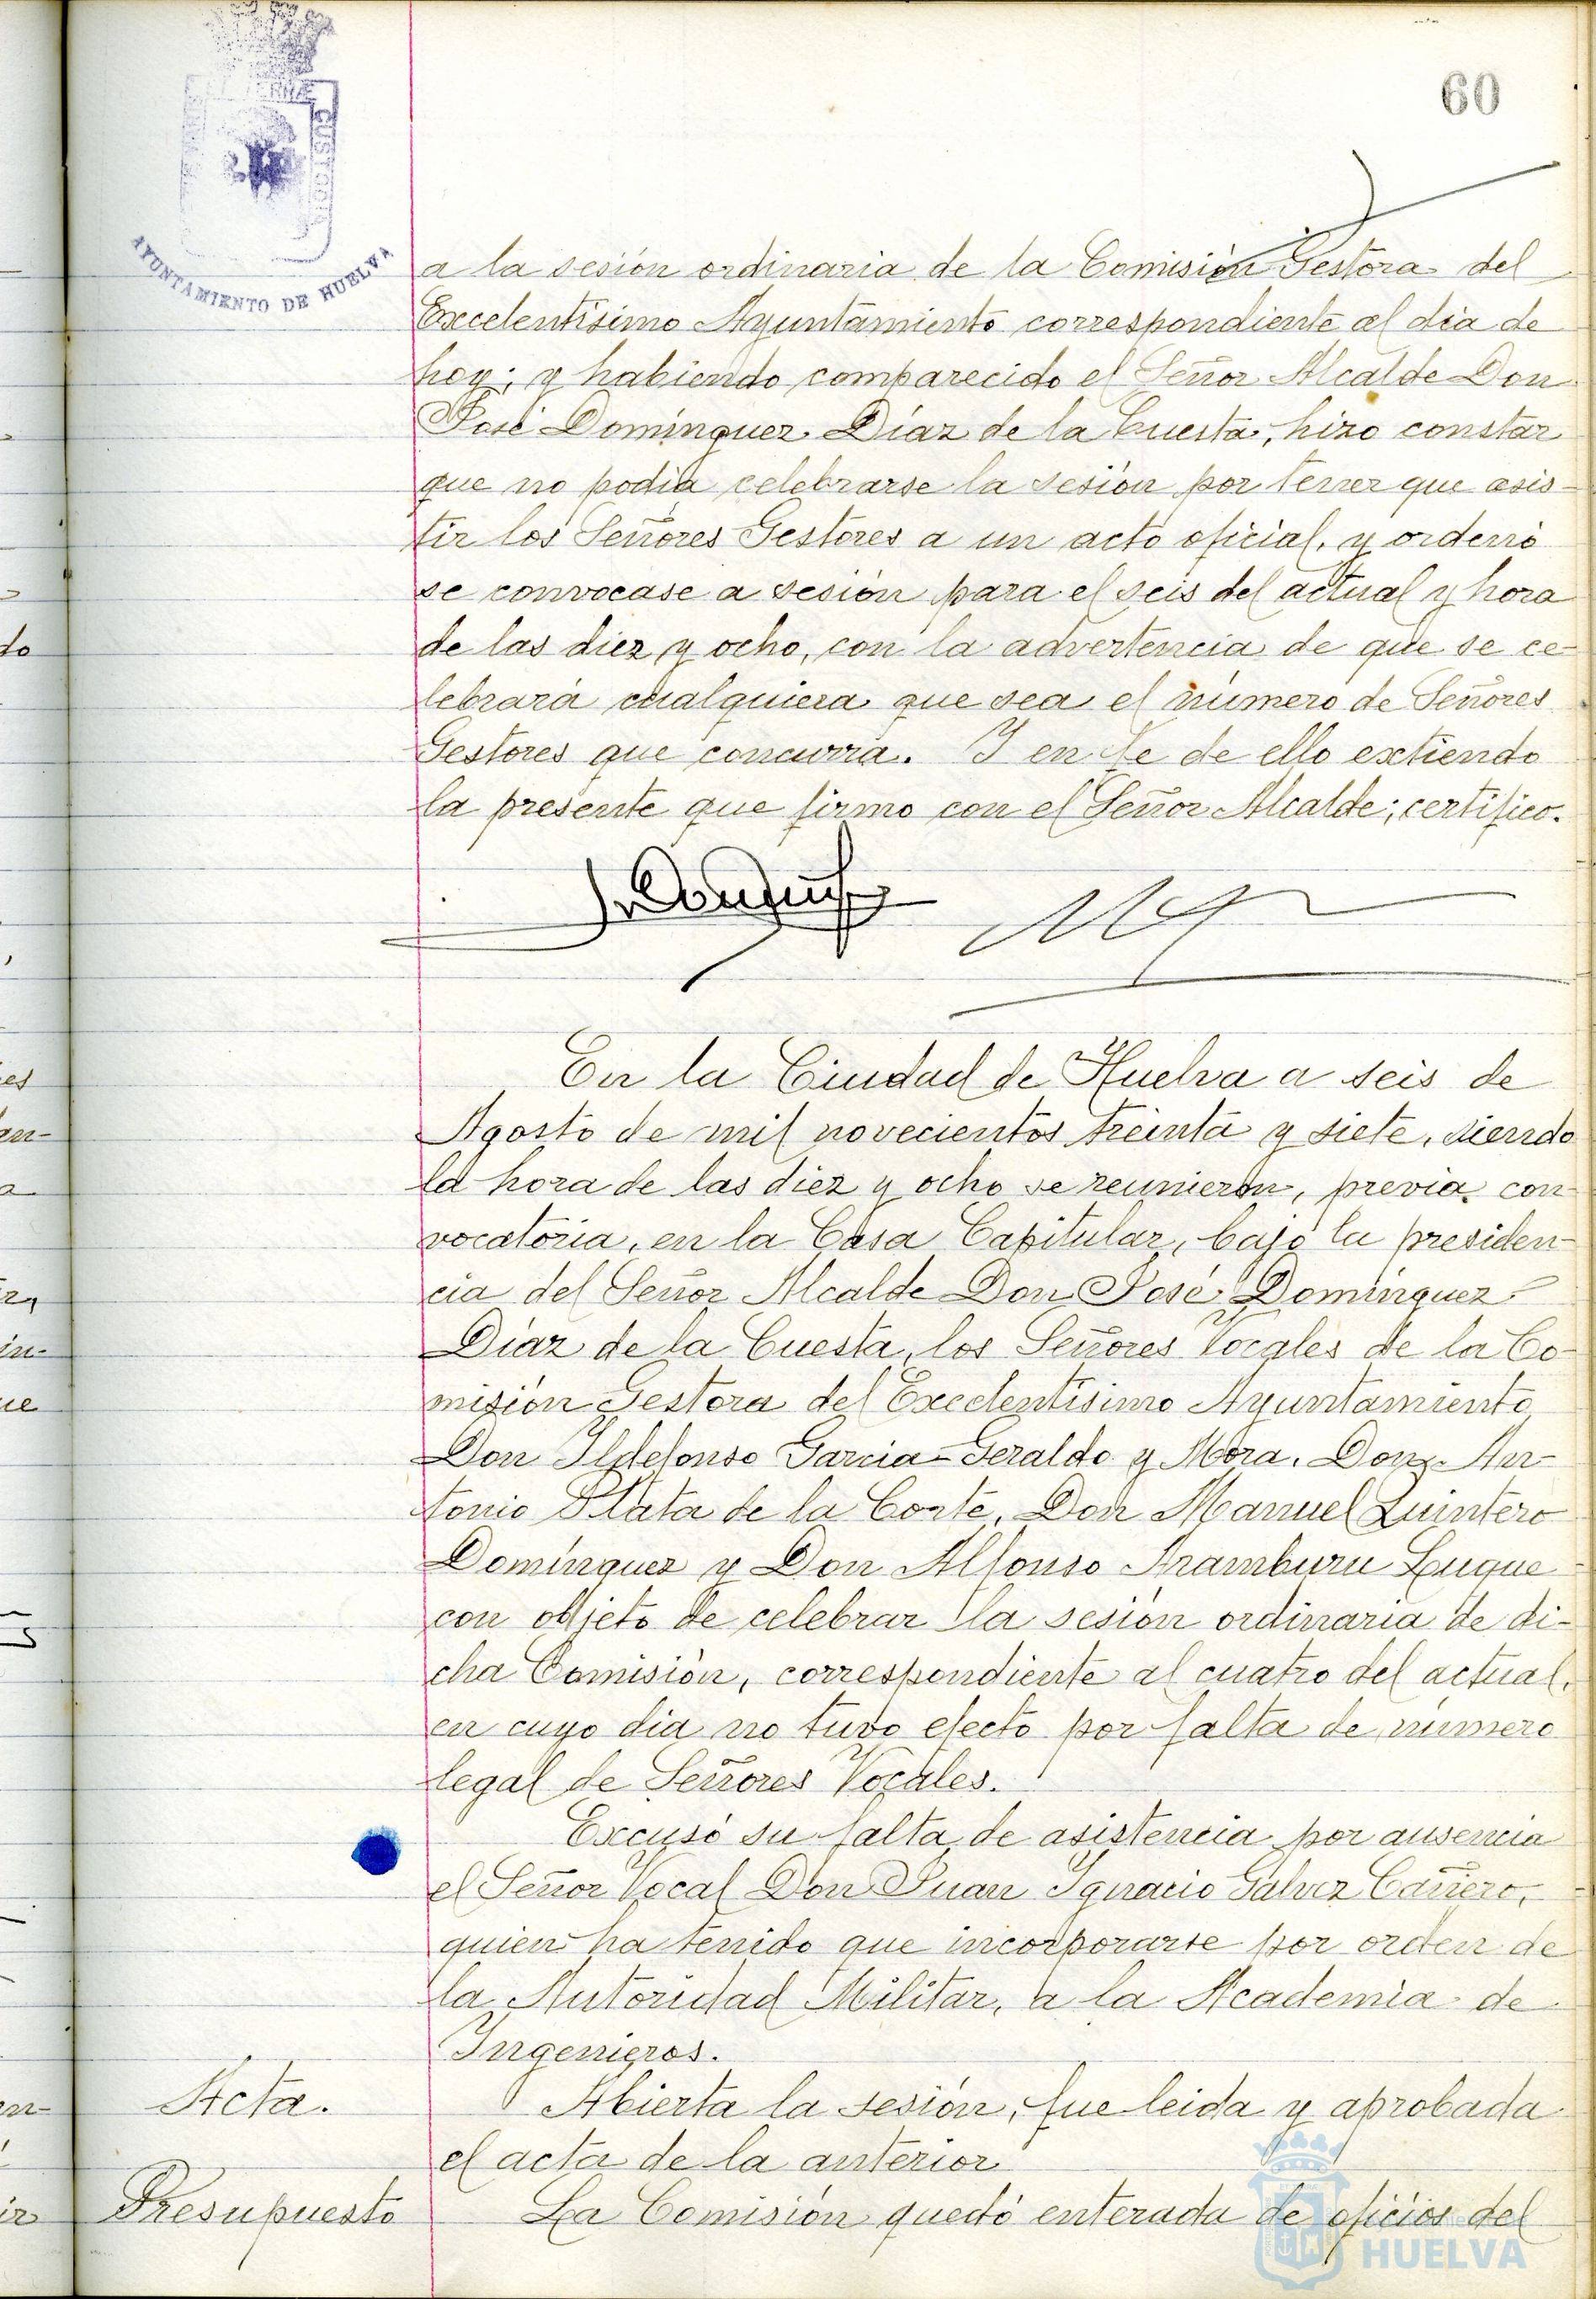 60
AYUNTAMIENTO DE HUELVA
a la sesión ordinaria de la Comisión Gestora del
Excelentísimo Ayuntamiento correspondiente al dia de
hoy; y habiendo comparecido el Señor Alcalde Don
José Domínguez Díaz de la Cuesta, hizo constar
que no podía celebrarse la sesión por tener que asis-
tir los Señores Gestores a un acto oficial, y ordenó
se convocase a sesión para el seis del actual y hora
de las diez y ocho, con la advertencia de que se ce-
lebrará cualquiera que sea el número de Señores
Gestores que concurra. Y en fe de ello extiendo
la presente que firmo con el Señor Alcalde; certifico.
En la Ciudad de Huelva a seis de
Agosto de mil novecientos treinta y siete, siendo
la hora de las diez y ocho se reunieron, previa con-
vocatoria, en la Casa Capitular, bajo la presiden-
cia del Señor Alcalde Don José Domínguez
Díaz de la Cuesta, los Señores Vocales de la Co-
misión Gestora del Excelentísimo Ayuntamiento
Don Ildefonso Garcia-Geraldo y Mora, Don An-
tonio Plata de la Corte, Don Manuel Quintero
Domínguez y Don Alfonso Aramburu Luque
con objeto de celebrar la sesión ordinaria de di-
cha Comisión, correspondiente al cuatro del actual,
en cuyo dia no tuvo efecto por falta de número
legal de Señores Vocales.
Excusó su falta de asistencia por ausencia
el Señor Vocal Don Juan Ignacio Gálvez Cañero,
quien ha tenido que incorporarse por orden de
la Autoridad Militar, a la Academia de
Ingenieros.
Acta.
Abierta la sesión, fue leida y aprobada
el acta de la anterior
Presupuesto
La Comisión quedó enterada de oficios del
HUELVA